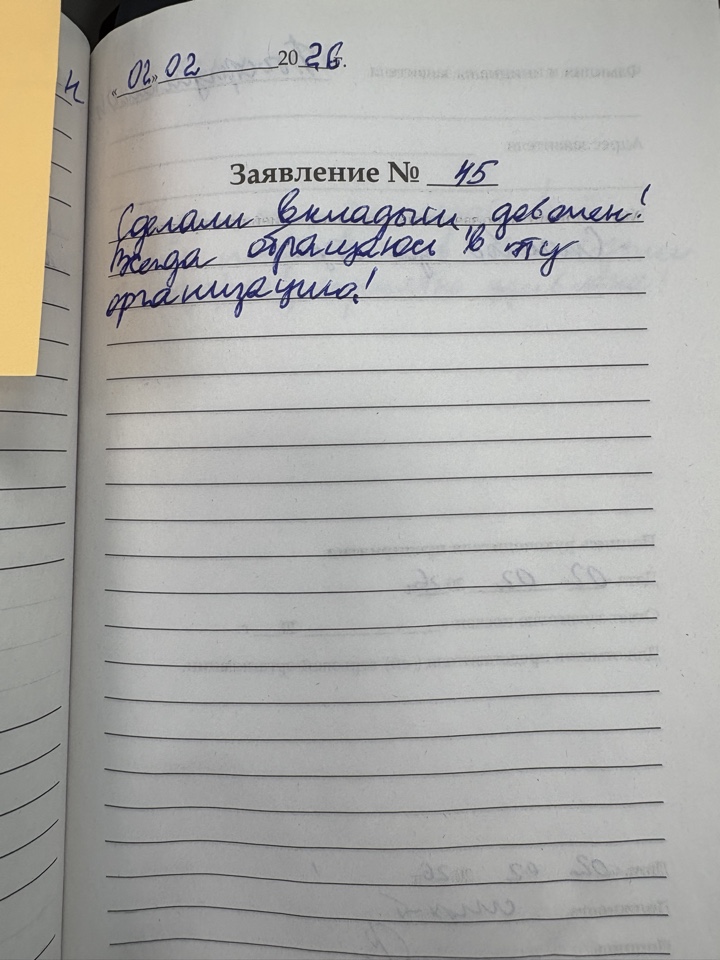 «02» 02 2026г.
Заявление № 45
Сделали вкладыши, доволен!
Всегда обращаюсь в эту
организацию!